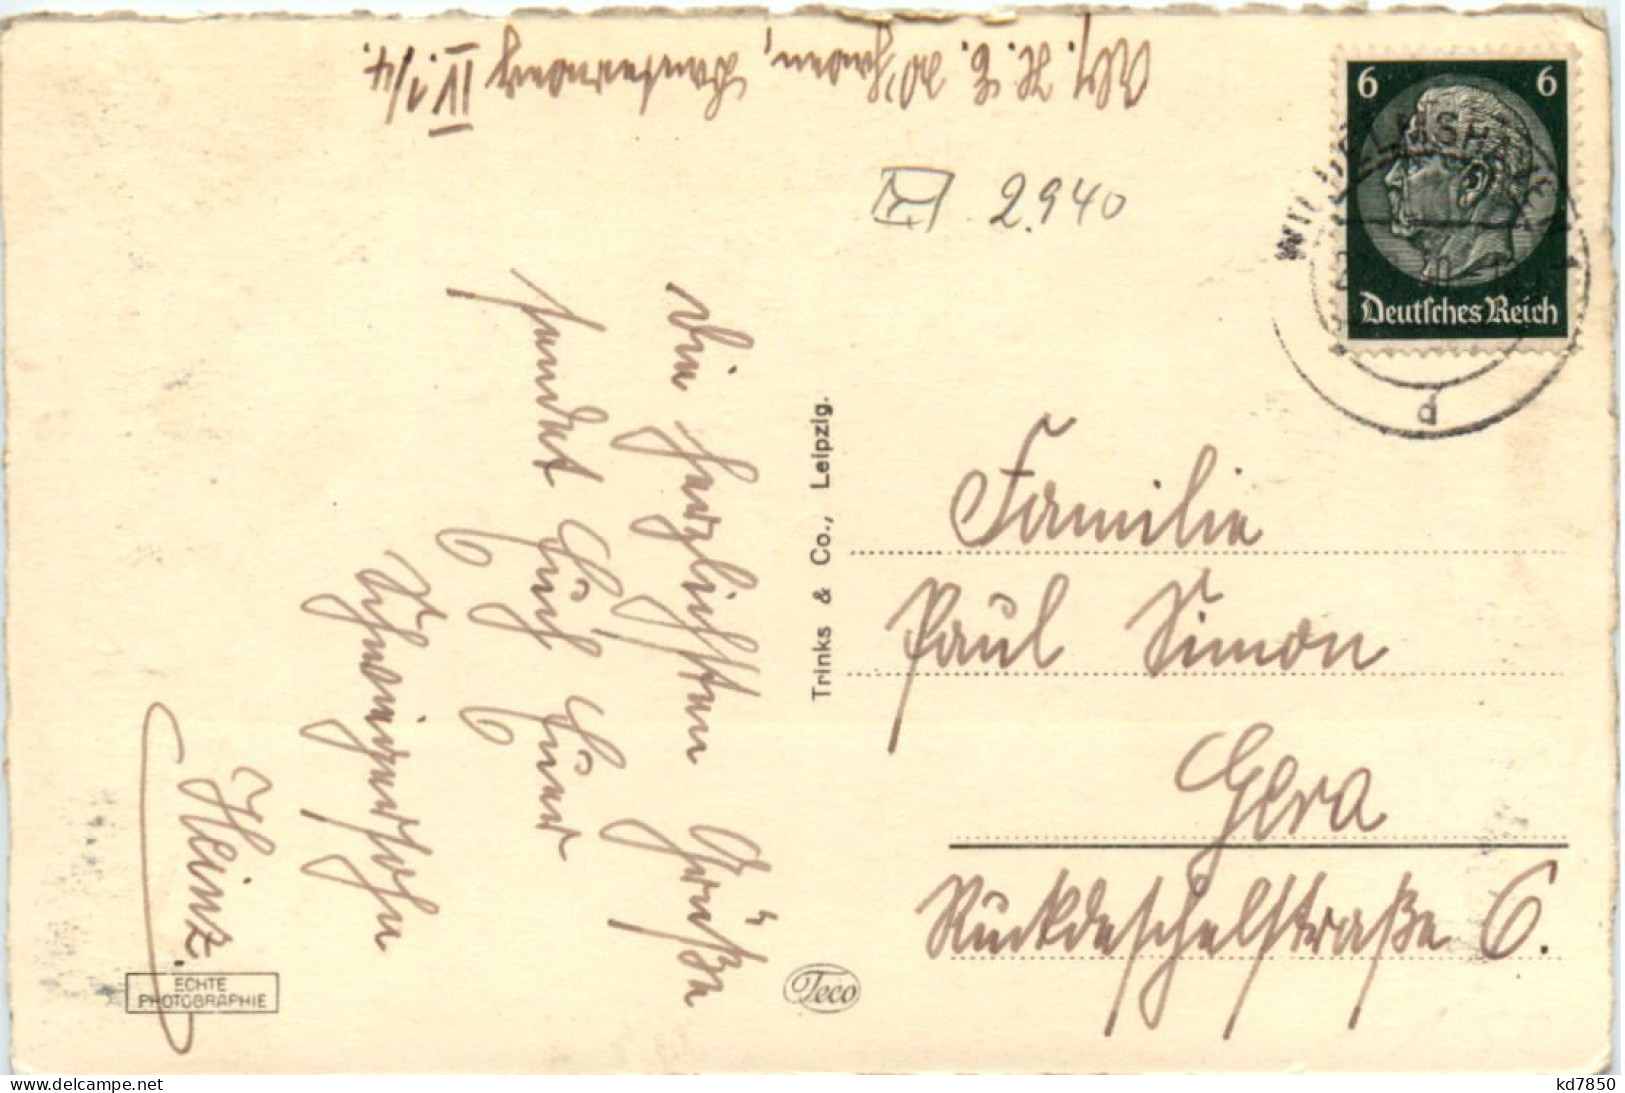 IV. 1/4.
2940
6 6
WILHELMSHAVEN 1
Deutsches Reich
d
Die herzlichsten Grüße
sendet Euch Euer
Schwiegersohn
Heinz.
Trinks & Co., Leipzig.
Familie
Paul Simon
Gera
Ruckdeschelstraße 6.
ECHTE
PHOTOGRAPHIE
Teco
www.delcampe.net
kd7850